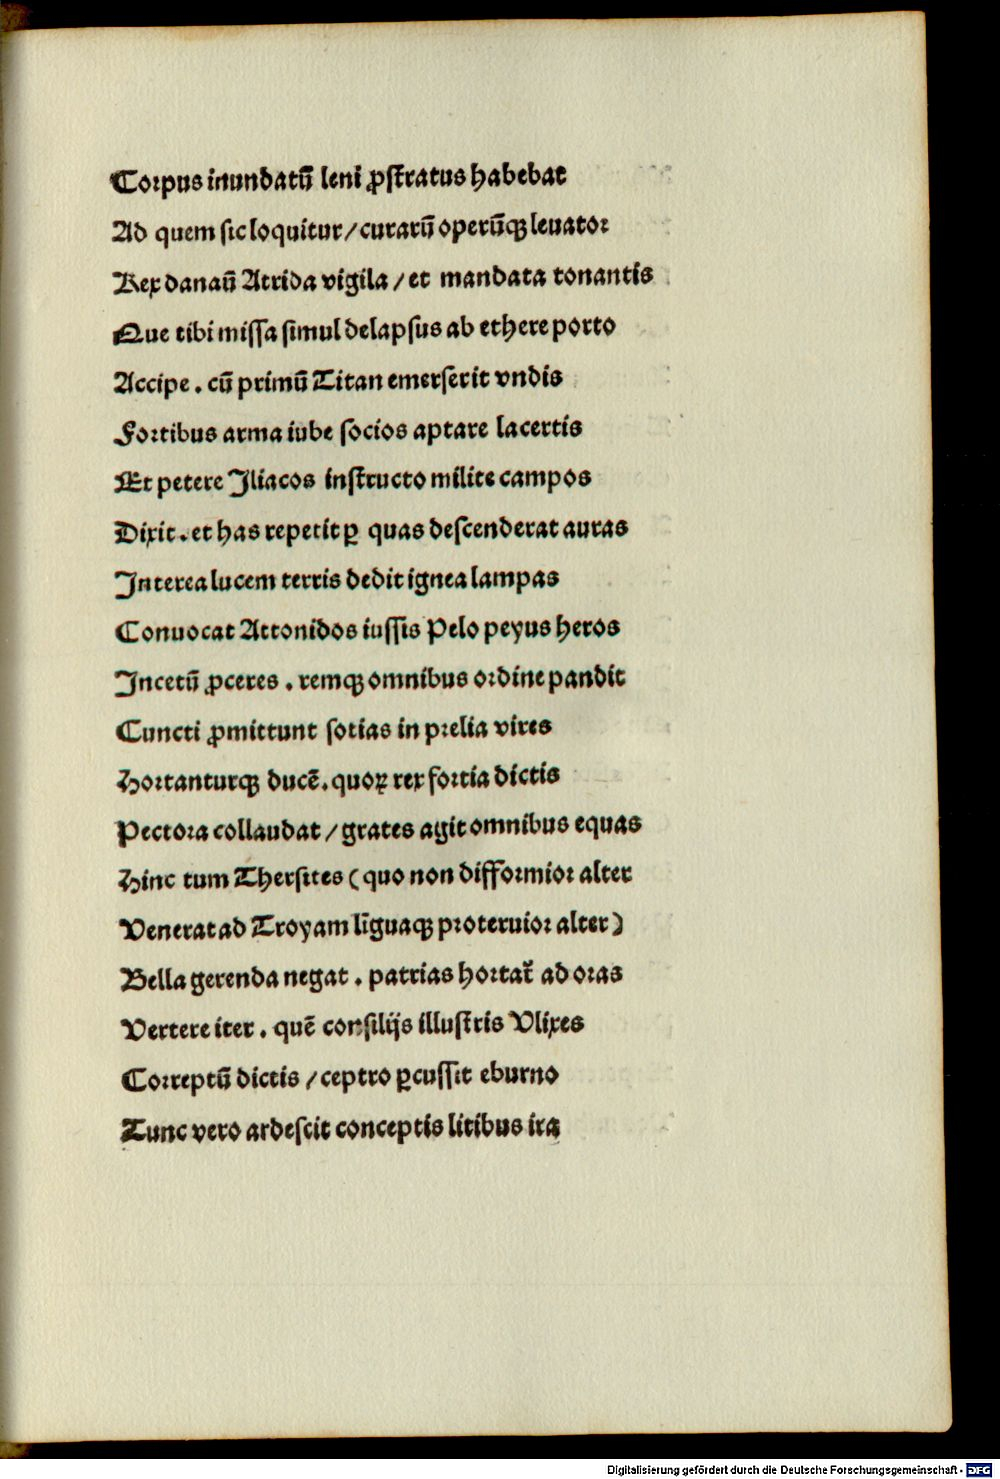 Corpus inundatū leni ꝓſtratus habebat
Ad quem ſic loquitur/curarū operūqꝫ leuator
Rex danaū Atrida vigila/et mandata tonantis
Que tibi miſſa ſimul delapſus ab ethere porto
Accipe. cū primū Titan emerſerit vndis
Fortibus arma iube ſocios aptare lacertis
Et petere Iliacos inſtructo milite campos
Dixit. et has repetit ꝑ quas deſcenderat auras
Interea lucem terris dedit ignea lampas
Conuocat Attonidos iuſſis Pelopeyus heros
Incetū ꝓceres. remqꝫ omnibus ordine pandit
Cuncti ꝓmittunt ſotias in prelia vires
Hortanturqꝫ ducē. quoꝝ rex fortia dictis
Pectora collaudat/grates agit omnibus equas
Hinc tum Therſites (quo non difformior alter
Venerat ad Troyam līguaqꝫ proteruior alter)
Bella gerenda negat. patrias hortat̄ ad oras
Vertere iter. quē conſilijs illuſtris Vlixes
Correptū dictis/ceptro ꝑcuſſit eburno
Tunc vero ardeſcit conceptis litibus ira
Digitalisierung gefördert durch die Deutsche Forschungsgemeinschaft - DFG